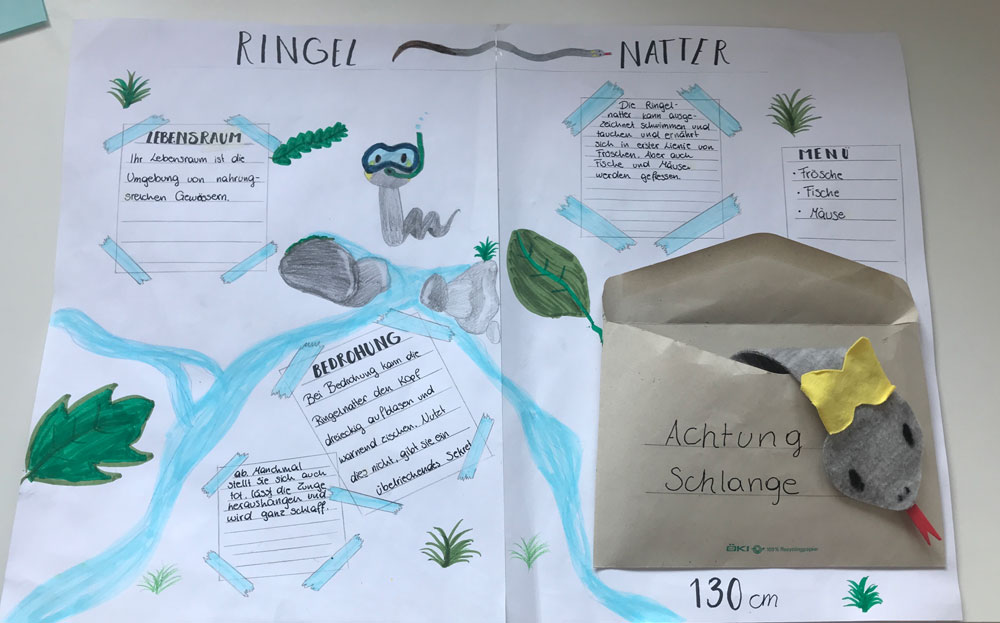 RINGEL NATTER
LEBENSRAUM
Ihr Lebensraum ist die
Umgebung von nahrung-
sreichen Gewässern.
Die Ringel-
natter kann ausge-
zeichnet schwimmen und
tauchen und ernährt
sich in erster Lienie von
Fröschen. Aber auch
Fische und Mäuse
werden gefressen.
MENÜ
• Frösche
• Fische
• Mäuse
BEDROHUNG
Bei Bedrohung kann die
Ringelnatter den Kopf
dreieckig aufblasen und
warnend zischen. Nutzt
dies nicht, gibt sie ein
übelriechendes Sekret
ab. Manchmal
stellt sie sich auch
tot, lässt die Zunge
heraushängen und
wird ganz schlaff.
Achtung
Schlange
ÖKI 100% Recyclingpapier
130 cm